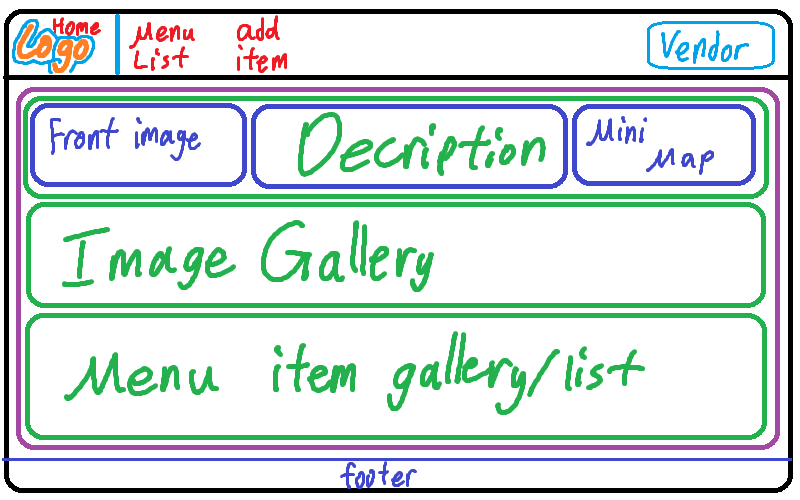 Home
Logo
Menu
List
add
item
Vendor
Front image
Decription
Mini
Map
Image Gallery
Menu item gallery/list
footer